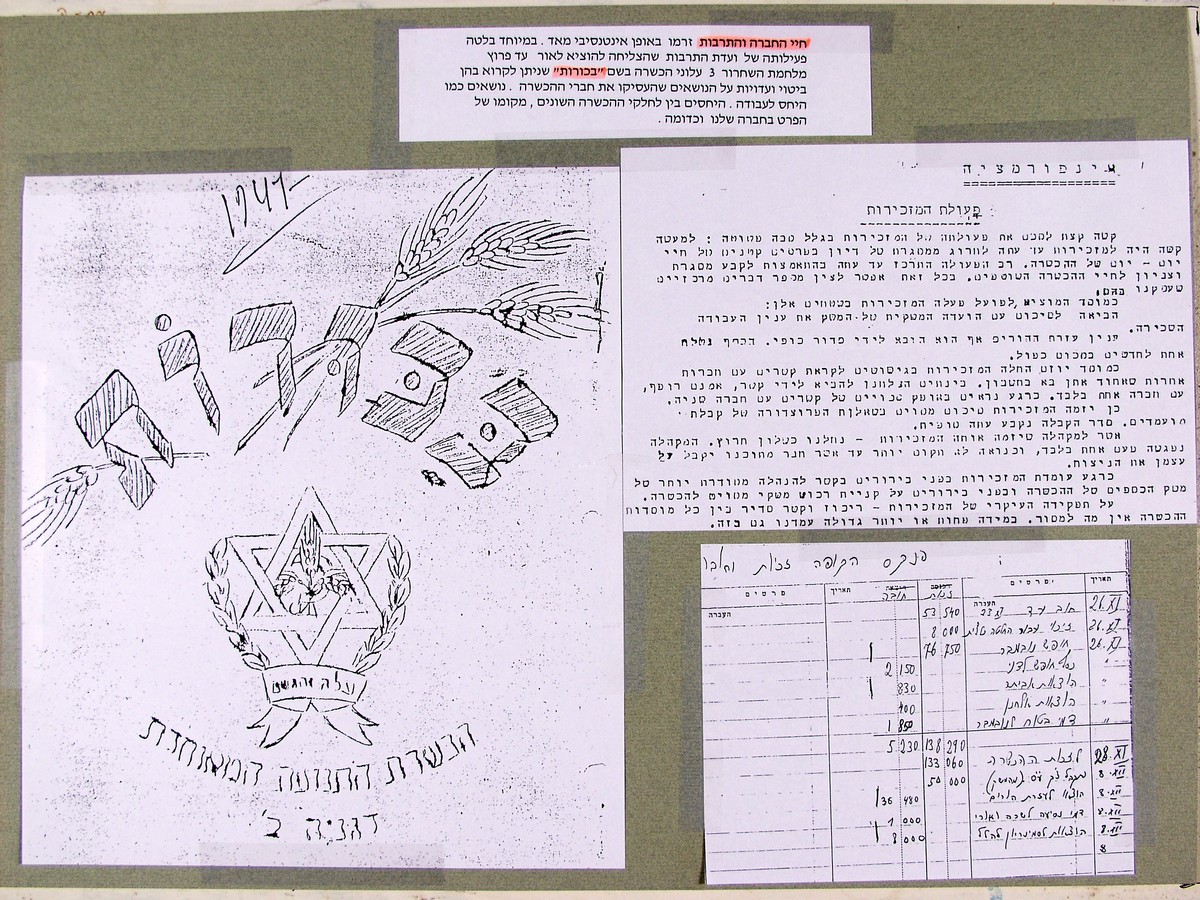 חיי החברה והתרבות זרמו באופן אינטנסיבי מאד . במיוחד בלטה
פעילותה של ועדת התרבות שהצליחה להוציא לאור עד פרוץ
מלחמת השחרור 3 עלוני הכשרה בשם "בכורות" שניתן לקרוא בהן
ביטוי ועדויות על הנושאים שהעסיקו את חברי ההכשרה . נושאים כמו
היחס לעבודה . היחסים בין לחלקי ההכשרה השונים , מקומו של
הפרט בחברה שלנו וכדומה .
1947
הגשמה
הכשרת התנועה המאוחדת
דגניה ב'
אינפורמציה
פעולת המזכירות
קשה קצת לסכם את פעולתה של המזכירות בגלל סבה פשוטה : למעשה
קשה היה למזכירות עד עתה לחרוג ממסגרת של דיון בפרטים קטנים של חיי
יום - יום של ההכשרה. רב הפעולה התרכז עד עתה בהתאמצות לקבע מסגרת
וצביון לחיי ההכשרה השוטפים. בכל זאת אפשר לציין מספר דברים מרכזיים
שעסקנו בהם.
כמוסד המוציא לפועל פעלה המזכירות בשטחים אלו:
הביאה לסיכום עם הועדה המשקית של המשק את ענין העבודה
השכירה.
ענין עזרת ההורים אף הוא הובא לידי סדור סופי. הכסף נשלח
אחת לחדשים במכום כפול.
כמוסד יוזם החלה המזכירות בגישושים לקראת קשרים עם חברות
אחרות
עם חברה אחת בלבד. כרגע נראים באופק סכויים של קשרים עם חברה שניה.
כן יזמה המזכירות סיכום מסוים בשאלת הפרוצדורה של קבלת
מועמדים. סדר הקבלה נקבע עתה סופית.
אשר למקהלה שיזמה אותה המזכירות - נחלנו כשלון חרוץ. המקהלה
נפגשה פעם אחת בלבד, וכנראה לא תקום יותר עד אשר חבר מתוכנו יקבל על
עצמו את הניצוח.
כרגע עומדת המזכירות בפני בירורים בקשר להנהלה מסודרת יותר של
משק הכספים של ההכשרה ובפני בירורים על קניית רכוש משקי מסוים להכשרה.
על תפקידה העיקרי של המזכירות - ריכוז וקשר סדיר בין כל מוסדות
ההכשרה אין מה למסור. במידה פחות או יותר גדולה עמדנו גם בזה.
פנקס הקופה זכות וחובה
תאריך פרטים זכות חובה תאריך פרטים
26.XI העברה 53 540 העברה
26.XI 8 000
26.XI חופש נובמבר 76 750
" 2 150
" הוצאות 830
" הוצאות אלחנן 400
" דמי ביטוח לנובמבר 1 850
138 290 5 230
28.XI לזכות ההכשרה 133 060
8.XII 50 000
8.XII הוצאו לעזרת הורים 36 480
8.XII דמי נסיעה לשרה ואורי 1 000
8.XII הוצאות לסמינריון 8 000
8